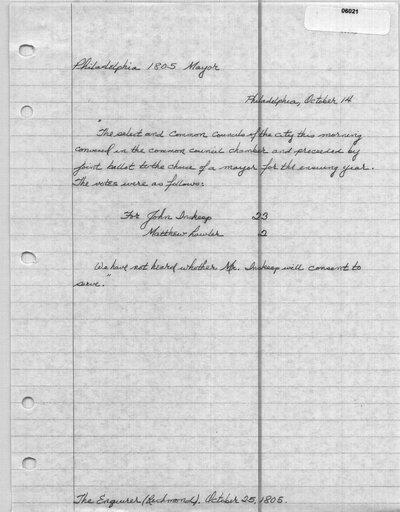 06021
Philadelphia 1805 Mayor
Philadelphia, October 14
"The select and Common Councils of the city this morning
convened in the common council chamber and proceeded by
joint ballot to the choice of a mayor for the ensuing year.
The votes were as follows:
For John Inskeep 23
Matthew Lawler 2
We have not heard whether Mr. Inskeep will consent to
serve."
The Enquirer (Richmond). October 25, 1805.